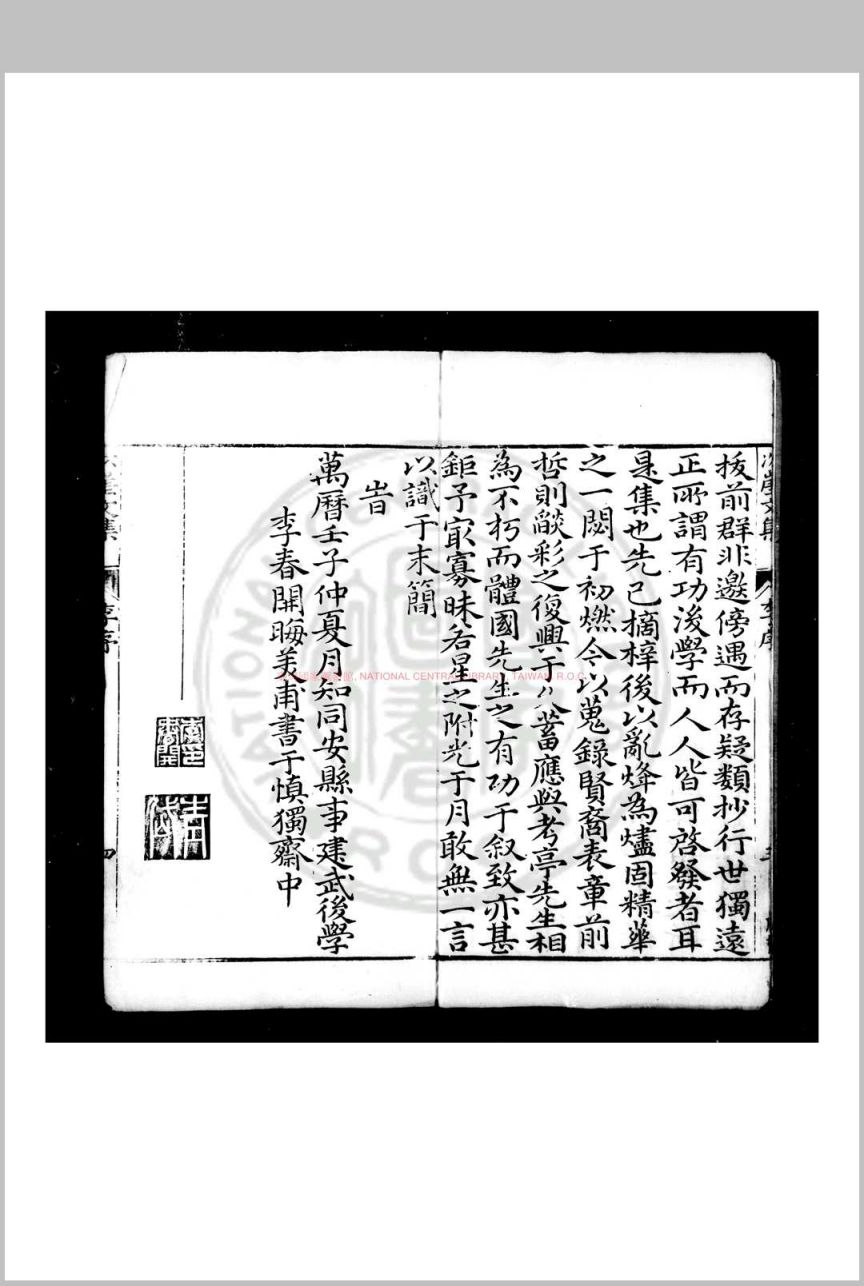 拔前群非邀傍遇而存疑類抄行世獨遠
正所謂有功後學而人人皆可啓發者耳
是集也先已摘梓後以亂烽為燼固精華
之一閼于初燃今以蒐錄賢裔表章前
哲則燄彩之復興于久蓄應與考亭先生相
為不朽而體國先生之有功于叙致亦甚
鉅予寂寡昧若星之附光于月敢無一言
以識于末簡
旹
萬曆壬子仲夏月知同安縣事建武後學
李春開晦美甫書于慎獨齋中
李序
四
NATIONAL CENTRAL LIBRARY, TAIWAN, R.O.C.